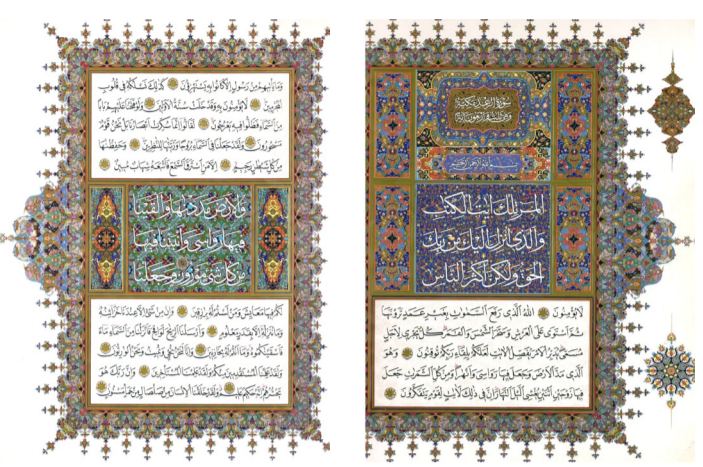 سورة الرعد مكية
بسم الله الرحمن الرحيم
المر تلك آيات الكتاب
والذي أنزل إليك من ربك
الحق ولكن أكثر الناس
لا يؤمنون الله الذي رفع السموات بغير عمد ترونها
ثم استوى على العرش وسخر الشمس والقمر كل يجري لاجل
مسمى يدبر الامر يفصل الايات لعلكم بلقاء ربكم توقنون وهو
الذي مد الارض وجعل فيها رواسي وانهارا ومن كل الثمرات جعل
فيها زوجين اثنين يغشي الليل النهار ان في ذلك لايات لقوم يتفكرون
وما يأتيهم من رسول الا كانوا به يستهزؤن كذلك نسلكه في قلوب
المجرمين لا يؤمنون به وقد خلت سنة الاولين ولو فتحنا عليهم بابا
من السماء فظلوا فيه يعرجون لقالوا انما سكرت ابصارنا بل نحن قوم
مسحورون ولقد جعلنا في السماء بروجا وزيناها للناظرين وحفظناها
من كل شيطان رجيم الا من استرق السمع فاتبعه شهاب مبين
والارض مددناها والقينا
فيها رواسي وانبتنا فيها
من كل شيء موزون وجعلنا
لكم فيها معايش ومن لستم له برازقين وان من شيء الا عندنا خزائنه
وما ننزله الا بقدر معلوم وارسلنا الرياح لواقح فانزلنا من السماء ماء
فاسقيناكموه وما انتم له بخازنين وانا لنحن نحيي ونميت ونحن الوارثون
ولقد علمنا المستقدمين منكم ولقد علمنا المستأخرين وان ربك هو
يحشرهم انه حكيم عليم ولقد خلقنا الانسان من صلصال من حمأ مسنون